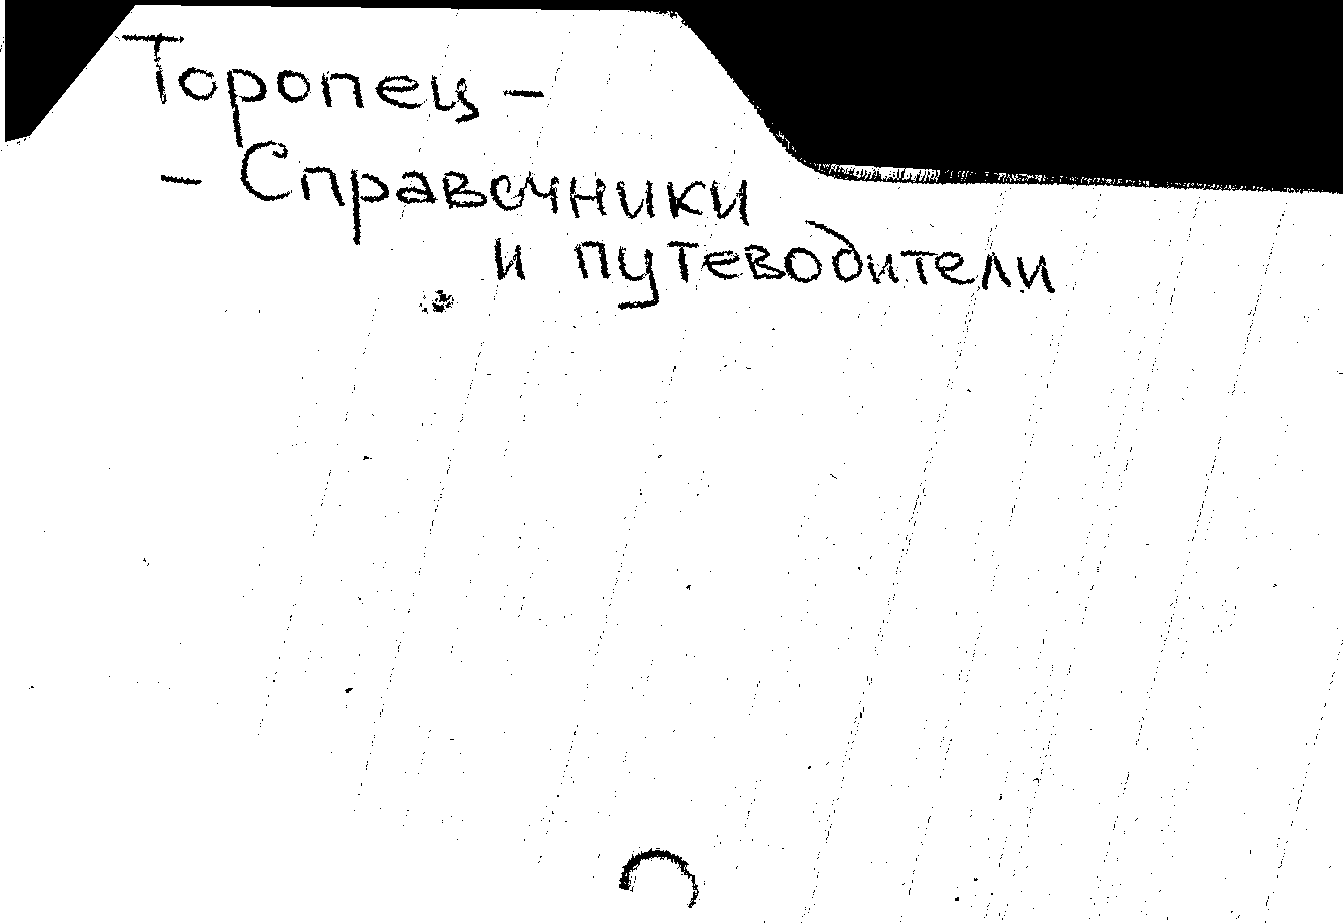 Торопец -
- Справочники
и путеводители